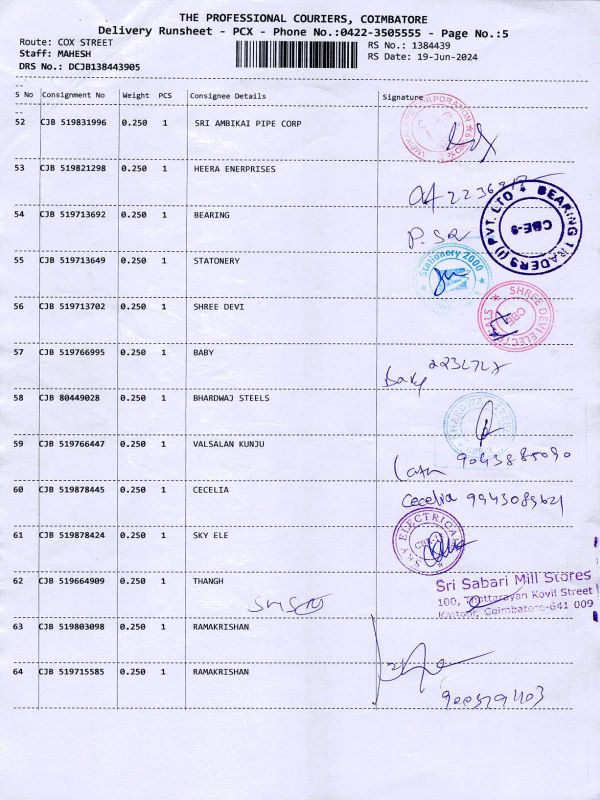 THE PROFESSIONAL COURIERS, COIMBATORE
Delivery Runsheet - PCX - Phone No.:0422-3505555 - Page No.:5
Route: COX STREET
RS No.: 1384439
Staff: MAHESH
RS Date: 19-Jun-2024
DRS No.: DCJB138443905
--
S No Consignment No Weight PCS Consignee Details Signature
--
52 CJB 519831996 0.250 1 SRI AMBIKAI PIPE CORP
53 CJB 519821298 0.250 1 HEERA ENERPRISES
54 CJB 519713692 0.250 1 BEARING
BEARING TRADERS (I) PVT. LTD
CBE-9
55 CJB 519713649 0.250 1 STATONERY
Stationery 2000
56 CJB 519713702 0.250 1 SHREE DEVI
SHREE DEVI ELECTRICALS
CBE
57 CJB 519766995 0.250 1 BABY
58 CJB 80449028 0.250 1 BHARDWAJ STEELS
59 CJB 519766447 0.250 1 VALSALAN KUNJU
60 CJB 519878445 0.250 1 CECELIA
Cecelia
61 CJB 519878424 0.250 1 SKY ELE
SKY ELECTRICAL
62 CJB 519664909 0.250 1 THANGH
Sri Sabari Mill Stores
100, Thottarayan Kovil Street
Kattoor, Coimbatore-641 009
63 CJB 519803098 0.250 1 RAMAKRISHAN
64 CJB 519715585 0.250 1 RAMAKRISHAN